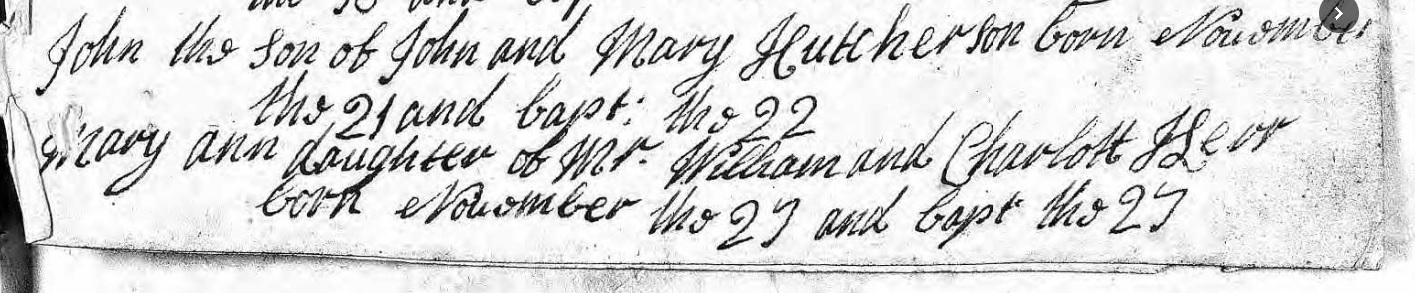 John the son of John and Mary Hutcherson born November
the 21 and bapt: the 22
Mary ann daughter of Mr. William and Charlott
born November the 27 and bapt the 27